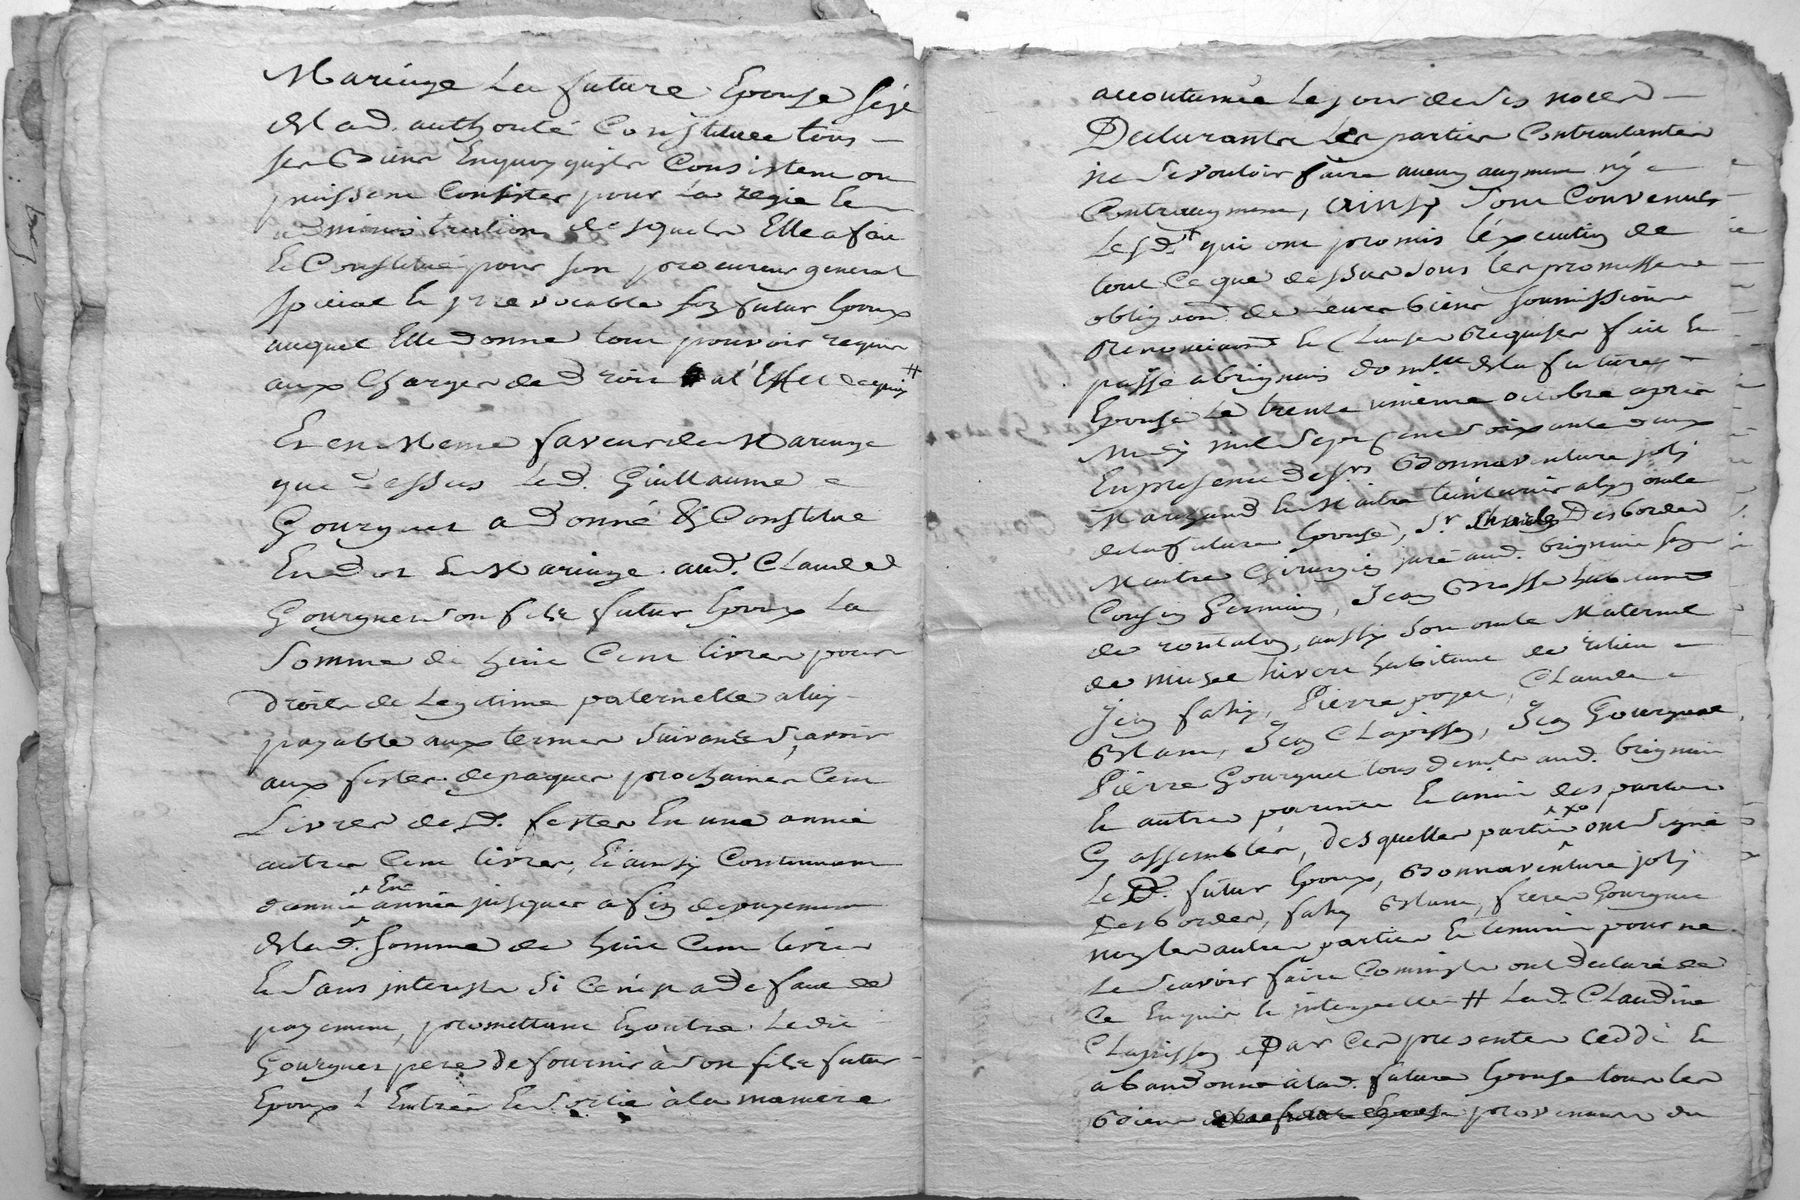 Mariage La future Epouse sése
de lad. authorité Constituee tous
ses Biens Enquoy quils Consistent ou
puissent Consister pour la regie Et
administration desquels Elle a fait
Et Constitué pour son procureur general
special Et jrrevocable son futur Epoux
auquel Elle donne tout pouvoir requis
aux Charges de droit # a l'Effet de quoy #
Et en Meme faveur de Mariage
que dessus Led. Guillaume
Gourguet a donné & Constitué
En dot de Mariage aud. Claude
Gourguet son fils futur Epoux La
Somme de huit Cent livres pour
droits de Legitime paternelle a luy
payable aux termes suivants sçavoir
aux festes de paques prochaines Cent
Livres desd. festes En une année
autres Cent livres, Et ainsy Continuant
d'année En année jusques a fin de payement
de lad. Somme de huit Cent livres
Et sans interests si Ce n'est a defaut de
payement, promettant En outre Ledit
Gourguet pere de fournir à son fils futur
Epoux L'Entrée Et Sortie à la maniere
accoutumée Le jour de ses noces
Declarants Les parties Contractantes
ne se vouloir faire aucun augment ny
Contraugment, ainsy sont Convenues
Lesd. qui ont promis l'execution de
tout Ce que dessus sous les promesses
oblig.ons de leurs biens soumissions
Renonciaons Et Clauses Requises fait Et
passé a brignais domlle de la future
Epouse Le trente unieme octobre apres
Midy mil sept Cent soixante deux
En presence des srs Bonnaventure joly
Marchand Et Maitre teinturier oncle
de la future Epouse, Sr Desbordes
Maitre Chirurgien juré aud. brignais son
Cousin Germain, Jean habitant
de rontalon, aussy son oncle Maternel
habitant de
Jean fahy, Pierre poyet, Claude
Blanc, Jean Clapisson, Jean Gourguet
Pierre Gourguet tous demts aud. brignais
Et autres parents Et amis des parties
Cy assemblés, desquelles parties ont signé
Le d. futur Epoux, Bonnaventure joly
Desbordes, fahy Blanc, freres Gourguet
non les autres parties Et temoins pour ne
Le sçavoir faire Comm'ils ont declaré de
Ce Enquis Et interpellés # Lad. Claudine
Clapisson Par Ces presentes cedde Et
abandonne à lad. future Epouse tous les
Biens provenants du